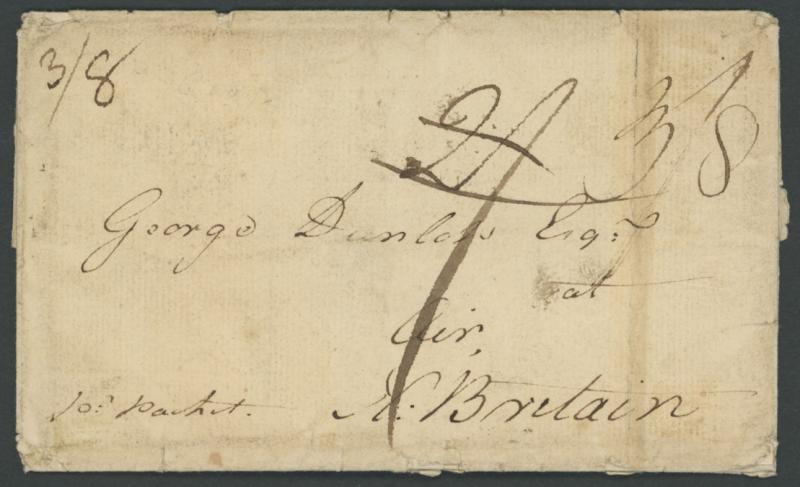 3/8
2/ 3/8
George Dunlop Esqr
at
Air,
N: Britain
pr. Packet.